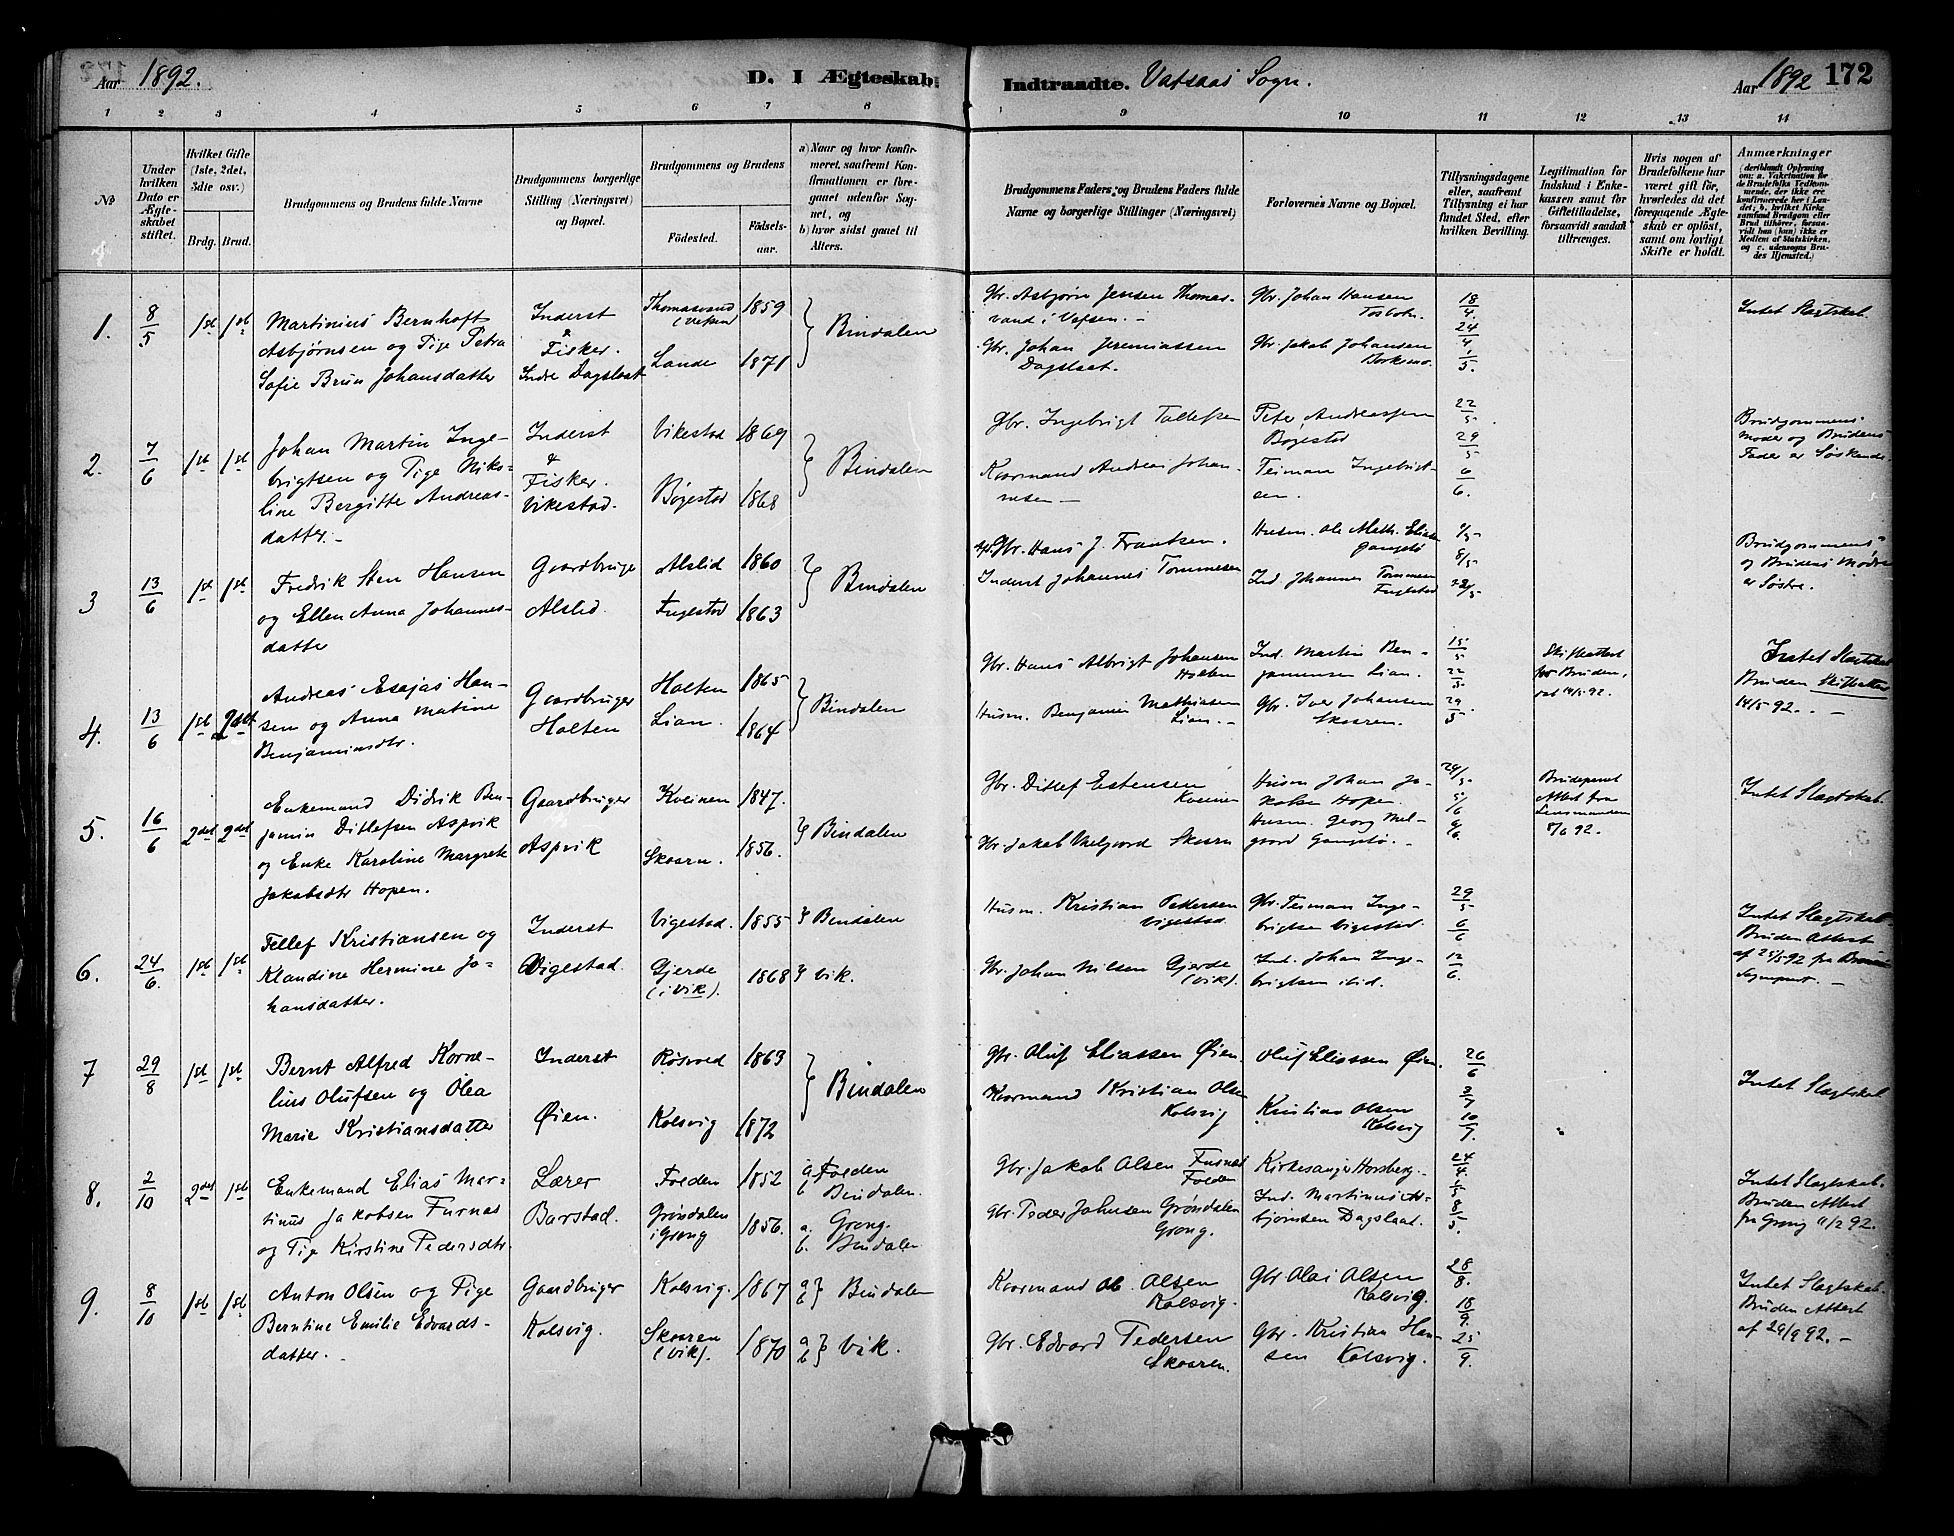 Aar 1892.
D. I Ægteskab
Indtraadte. Vatsaas Sogn.
Aar 1892 172
1 2 3 4 5 6 7 8 9 10 11 12 13 14
No
Under
hvilken
Dato er
Ægte-
skabet
stiftet.
Hvilket Gifte
(1ste, 2det,
3die osv.)
Brdg. Brud.
Brudgommens og Brudens fulde Navne
Brudgommens borgerlige
Stilling (Næringsvei)
og Bopæl.
Brudgommens og Brudens
Födested.
Födsels-
aar.
a) Naar og hvor konfir-
meret, saafremt Kon-
firmationen er fore-
gaaet udenfor Sog-
net, og
b) hvor sidst gaaet til
Alters.
Brudgommens Faders og Brudens Faders fulde
Navne og borgerlige Stillinger (Næringsvei)
Forlovernes Navne og Bopæl.
Tillysningsdagene
eller, saafremt
Tillysning ei har
fundet Sted, efter
hvilken Bevilling.
Legitimation for
Indskud i Enke-
kassen samt for
Giftetilladelse,
forsaavidt saadan
tiltrænges.
Hvis nogen af
Brudefolkene har
været gift för,
hvorledes da det
foregaaende Ægte-
skab er oplöst,
samt om lovligt
Skifte er holdt.
Anmærkninger
(deriblandt Oplysning
om: a. Vakcination for
de Brudefolks Vedkom-
mende, der ikke ere
konfirmerede her i Lan-
det; b. hvilket Kirke-
samfund Brudgom eller
Brud tilhörer, forsaa-
vidt han (hun) ikke er
Medlem af Statskirken,
og c. udensogns Bru-
des Hjemsted.)
1. 8/5 1ste 1ste
Martinius Bernhoft
Asbjørnsen og Pige Petra
Sofie Brun Johansdatter
Inderst
&
Fisker.
Indre Dagslaat
Thomasvand
(Vefsen) 1859
Lande 1871
Bindalen
Gbr. Asbjørn Jensen Thomas-
vand i Vefsen. -
Gbr. Johan Jeremiassen
Dagslaat.
Gbr. Johan Hansen
Tosbotn.
Gbr. Jakob Johansen
18/4.
24/4
1/5.
Intet Slagtskab.
2. 7/6 1ste 1ste
Johan Martin Inge-
brigtsen og Pige Niko-
line Bergitte Andreas-
datter. -
Inderst
&
Fisker.
Vikestad.
Vikestad 1869
Bøgestad 1868
Bindalen
Gbr. Ingebrigt Tollefsen
Kaarmand Andreas Johan-
nesen -
Peter Andreassen
Bøgestad
Teiman Ingebrigt-
sen.
22/5.
29/5
6/6.
Brudgommens
Moder og Brudens
Fader er Søskende.
3 13/6 1ste 1ste
Fredrik Sten Hansen
og Ellen Anna Johannes-
datter
Gaardbruger
Alslid.
Alslid 1860
Fuglestad 1863
Bindalen
Gbr. Hans J. Frantsen.
Inderst Johannes Tommesen
Husm. Ole Math. Elias
Gangstø
Ind. Johannes Tommesen
Fuglestad
1/5
8/5
22/5
Brudgommens
og Brudens Mødre
er Søstre.
4. 13/6 1ste 2det
Andreas Esajas Han-
sen og Anna Matine
Benjaminsdtr.
Gaardbruger
Holten
Holten 1865
Lian. 1864
Bindalen
Gbr. Hans Albrigt Johansen
Holten
Husm. Benjamin Mathiasen
Lian. -
Ind. Martin Ben-
jaminsen Lian.
Gbr. Iver Johansen
Skaaren.
15/5
22/5.
29/5.
Skifteattest
for Bruden,
dat 14/5 92.
Intet Slagtskab
Bruden Skifteattest
14/5 92. -
5. 16/6 2det 2det
Enkemand Didrik Ben-
jamin Ditlefsen Aspvik
og Enke Karoline Margrete
Jakobsdtr Hopen.
Gaardbruger
Aspvik
Kveinen 1847.
Skaarn. 1856.
Bindalen
Gbr. Ditlef Estensen
Kveinen
Gbr. Jakob Melgaard Skaaren
Husm Johan Ja-
kobsen Hopen.
Husm. Georg Mel-
gaard Gangstø. -
29/5.
5/6
9/6
Attest fra
Lensmanden
7/6 92.
Intet Slagtskab.
6. 24/6. 1ste 1ste
Tellef Kristiansen og
Klaudine Hermine Jo-
hansdatter.
Inderst
Vigestad.
Vigestad. 1855
Gjerde
(i Vik). 1868
Bindalen
Vik.
Husm. Kristian Pedersen
Vigestad
Gbr. Johan Nilsen Gjerde
(Vik).
Gbr. Teiman Inge-
brigtsen Vigestad.
Ind. Johan Inge-
brigtsen ibid.
29/5.
6/6
12/6.
Intet Slagtskab.
Bruden Attest
af 25/5 92 fra
Sognepræst. -
7 29/8 1ste 1ste
Bernt Alfred Korne-
lius Olufsen og Olea
Marie Kristiansdatter
Inderst
Øien.
Røsved 1863
Kolsvig 1872
Bindalen
Gbr. Oluf Eliassen Øien
Kaarmand Kristian Olsen
Kolsvig
Oluf Eliassen Øien.
Kristian Olsen
Kolsvig
26/6
3/7
10/7.
Intet Slagtskab.
8. 2/10 2det 1ste
Enkemand Elias Mar-
tinus Jakobsen Furnæs
og Pige Kirstine Pedersdtr.
Lærer
Barstad.
Folden 1852
Grøndalen
i Grong 1856.
a Folden
b Bindalen.
a. Grong.
b. Bindalen
Gbr. Jakob Olsen Furnæs
Folden
Gbr. Peder Johnsen Grøndalen
Grong.
Kirkesanger Horsberg.
Ind. Martinus As-
bjørnsen Dagslaat.
24/4.
1/5
8/5.
Intet Slagtskab.
Bruden Attest
fra Grong 11/2 92.
9. 8/10 1ste 1ste
Anton Olsen og Pige
Berntine Emilie Edvards-
datter. -
Gaardbruger
Kolsvig.
Kolsvig. 1867
Skaaren
(Vik). 1870
a b } Bindalen
a b } Vik.
Kaarmand Ole Olsen
Kolsvig.
Gbr. Edvard Pedersen
Skaaren.
Gbr Olai Olsen
Kolsvig.
Gbr. Kristian Han-
sen Kolsvig.
28/8.
18/9.
25/9.
Intet Slagtskab.
Bruden Attest
af 29/9 92. -